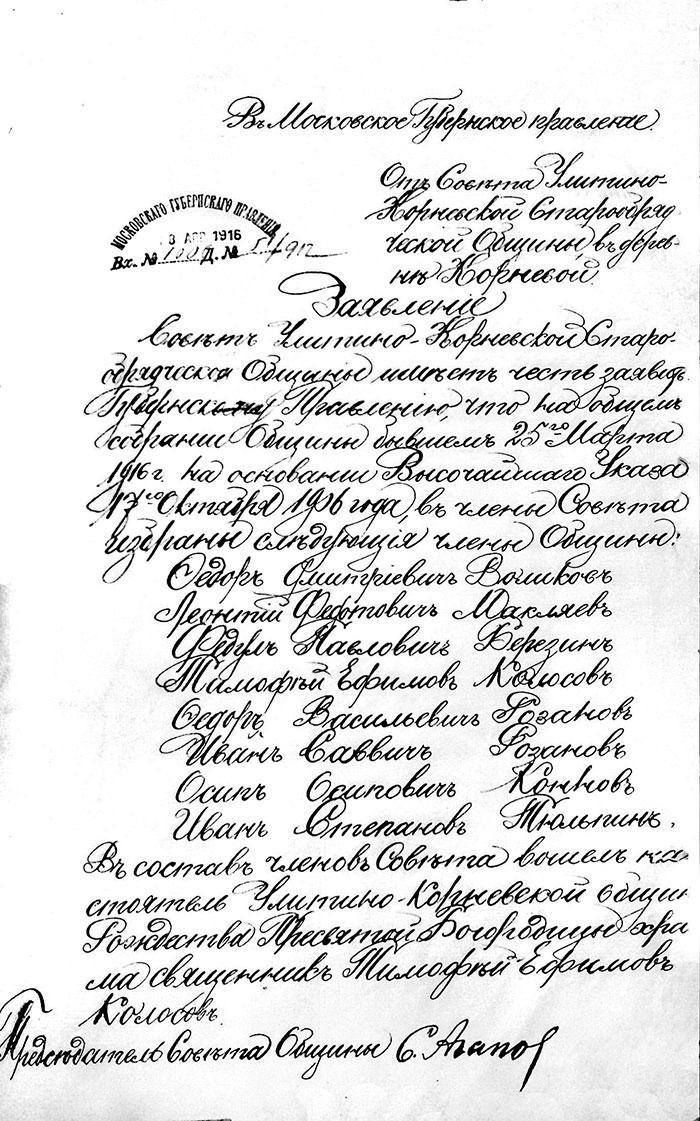 Въ Московское Губернское правленіе.
Отъ Совѣта Улитино-
Корневской Старообряд-
ческой Общины, въ дерев-
нѣ Корневой.
МОСКОВСКАГО ГУБЕРНСКАГО ПРАВЛЕНІЯ
8 АПР 1916
Вх. № Д. №
Заявленіе
Совѣтъ Улитино-Корневской Старо-
обрядческой Общины имѣетъ честь заявить
Губернск Правленію, что на общемъ
собраніи Общины бывшемъ 25го Марта
1916 г. на основаніи Высочайшаго Указа
17го Октября 1906 года, въ члены Совѣта
избраны слѣдующія члены Общины:
Ѳедоръ Дмитріевичъ Воликовъ
Леонтій Федотовичъ Макляевъ
Федулъ Павловичъ Березинъ
Тимофѣй Ефимовъ Колосовъ
Ѳедоръ Васильевичъ Розановъ
Иванъ Саввичъ Розановъ
Осипъ Осиповичъ Конновъ
Иванъ Степановъ Тюльпинъ.
Въ составъ членовъ Совѣта вошелъ на-
стоятель Улитино-Корневской общин
Рождества Пресвятой Богородицы хра
ма священникъ Тимофѣй Ефимовъ
Колосовъ.
Предсѣдатель Совѣта Общины С. Агапов